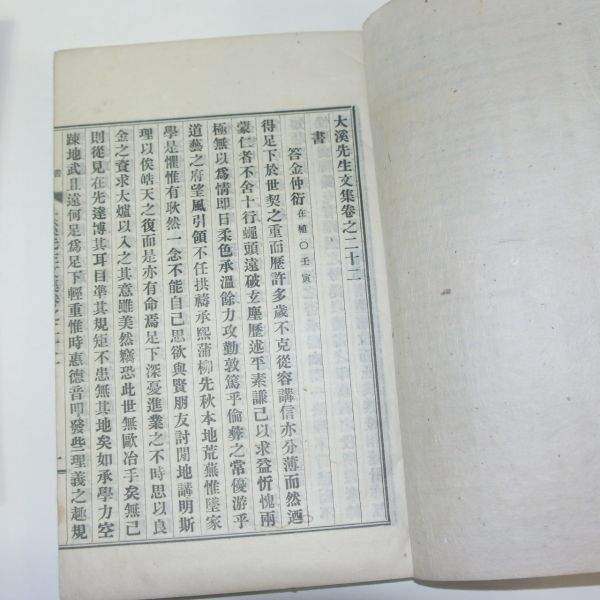 大溪先生文集卷之二十二
書
答金仲衍 在植○壬寅
得足下於世契之重而歷許多歲不克從容講信亦分薄而然迺
蒙仁者不舍十行蠅頭遠破玄塵歷述平素謙己以求益忻愧兩
極無以爲情卽日柔色承溫餘力攻勤敦篤乎倫彝之常優游乎
道藝之府望風引領不任拱禱承熙蒲柳先秋本地荒蕪惟墜家
學是懼惟有耿然一念不能自己思欲與賢朋友討閒地講明斯
理以俟皓天之復而是亦有命焉足下深憂進業之不時思以良
金之資求大爐以入之其意雖美然竊恐此世無歐冶手矣無已
則從見在先達博其耳目準其規矩不患無其地矣如承學力空
疎地武且遠何足爲足下輕重惟時惠德音叩發些理義之趣規